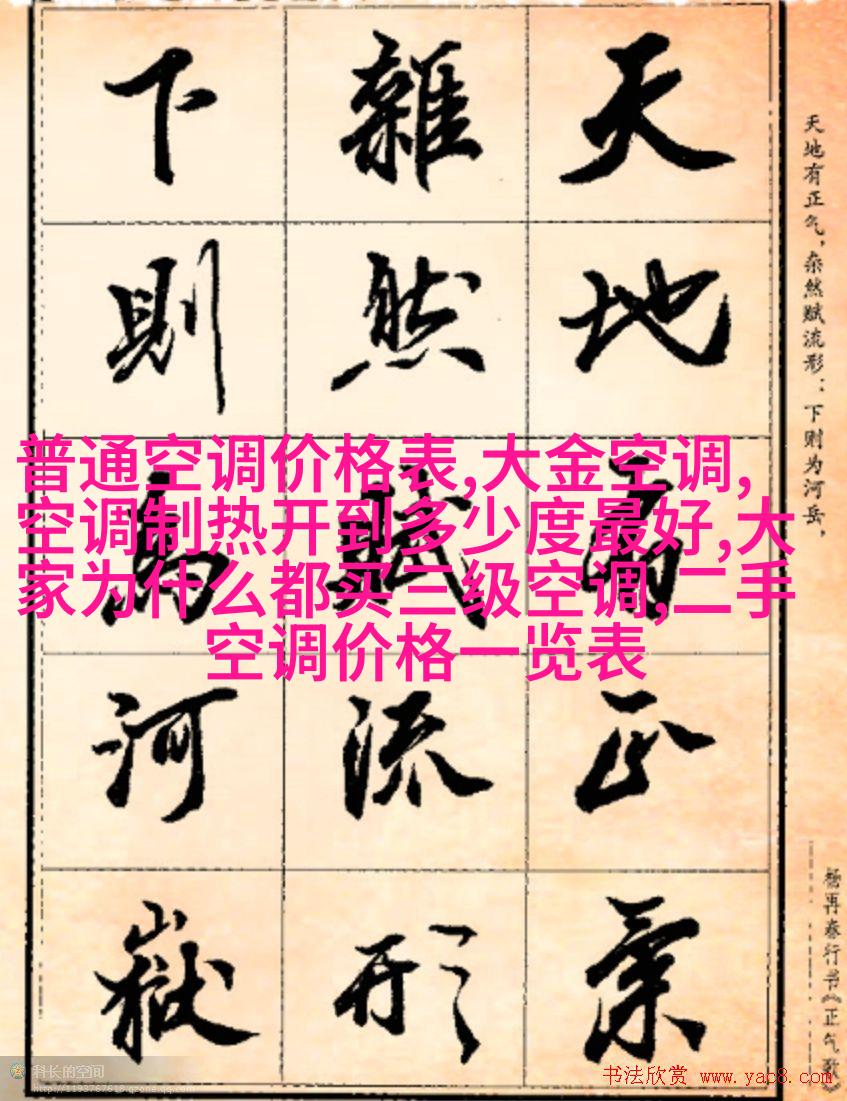 天地有正氣
雜然賦流形
下則為河嶽
天地有正气，杂然赋流形：下则为河岳，
杨再春行书《正气歌》
普通空调价格表,大金空调,
空调制热开到多少度最好,大
家为什么都买三级空调,二手
空调价格一览表
科长的空间
http://1193767618.qzone.qq.com
书法欣赏 www.yac8.com